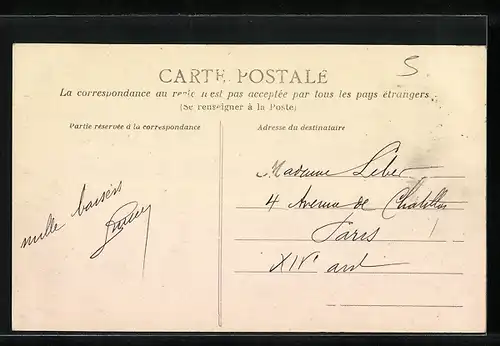 5
CARTE POSTALE
La correspondance au recto n'est pas acceptée par tous les pays étrangers
(Se renseigner à la Poste)
Partie réservée à la correspondance
Adresse du destinataire
mille baisers
Madame Leber
4 Avenue de Chatillon
Paris
XIVe ard